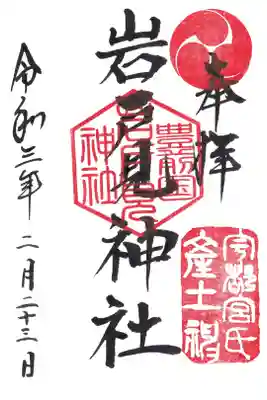 奉拝
岩戸見神社
令和三年二月二十三日
豊前国
神社
宇都宮氏
産土神